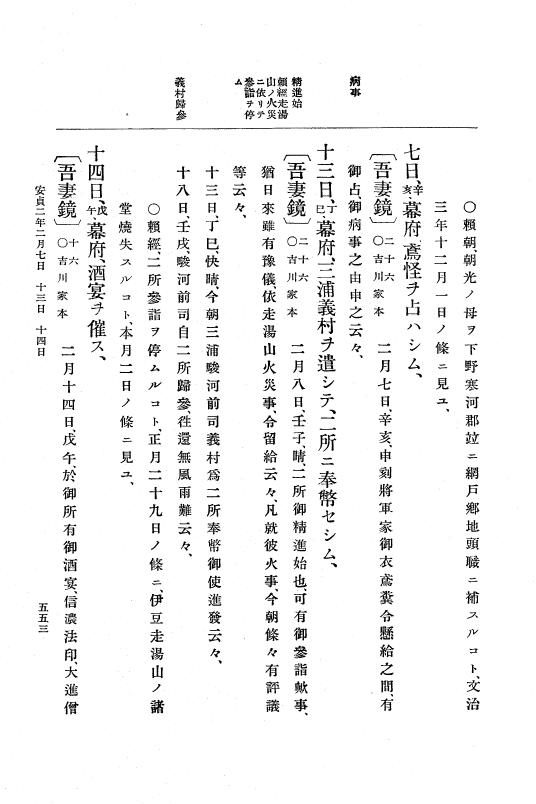 病事
精進始
頼經走湯
山ノ火災
ニ依リテ
參詣ヲ停
ム
義村歸參
○頼朝、朝光ノ母ヲ下野寒河郡竝ニ網戸鄕地頭職ニ補スルコト、文治
三年十二月一日ノ條ニ見ユ、
七日、辛亥、幕府、鳶怪ヲ占ハシム、
〔吾妻鏡〕二十六 ○吉川家本 二月七日、辛亥、申刻將軍家御衣鳶糞令懸給之間、有
御占、御病事之由申之云々、
十三日、丁巳、幕府、三浦義村ヲ遣シテ、二所ニ奉幣セシム、
〔吾妻鏡〕二十六 ○吉川家本 二月八日、壬子、晴、二所御精進始也、可有御參詣歟事、
猶日來雖有豫儀、依走湯山火災事、令留給云々、凡就彼火事、今朝條々有評議
等云々、
十三日、丁巳、快晴、今朝三浦駿河前司義村爲二所奉幣御使進發云々、
十八日、壬戌、駿河前司自二所歸參、徃還無風雨難云々、
○頼經、二所參詣ヲ停ムルコト、正月二十九日ノ條ニ、伊豆走湯山ノ諸
堂燒失スルコト、本月二日ノ條ニ見ユ、
十四日、戊午、幕府、酒宴ヲ催ス、
〔吾妻鏡〕十六 ○吉川家本 二月十四日、戊午、於御所有御酒宴、信濃法印、大進僧
安貞二年二月七日 十三日 十四日
五五三